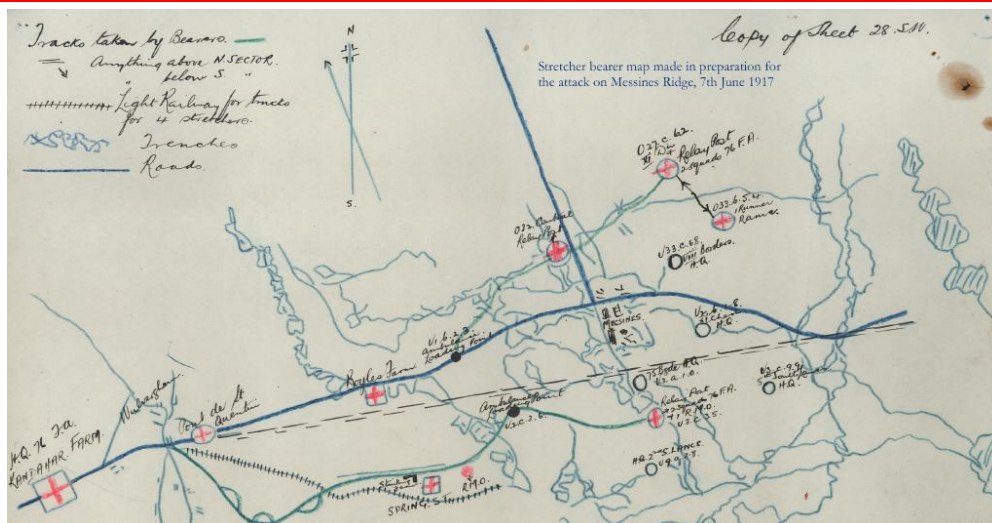 Tracks taken by Bearers.
Anything above N. SECTOR.
below S. "
Light Railway for trucks
for 4 stretchers.
Trenches
Roads.
N
S.
Copy of Sheet 28. S.W.
Stretcher bearer map made in preparation for
the attack on Messines Ridge, 7th June 1917
O27.C.62.
XI Div
Relay Post
2 squads 76 F.A.
O33.b.5.4.
1 Runner
R.A.M.C.
O32. Central
Relay Post
U33.C.68.
VIII Borders.
H.Q.
MESSINES
H.Q.
U1.b.2.3.
Ambulance
Loading Point
Royles Farm
75 Bgde H.Q.
U2.a.1.0.
H.Q.
Ambulance
Loading Point
U2.C.2.6.
Relay Post
squads 76 F.A.
R.M.O.
U2.C.25.
H.Q. 2nd S. LANCS.
Pont de St
Quentin
Wulverghem
H.Q. 76 F.A.
KANDAHAR FARM.
R.M.O.
SPRING. ST.